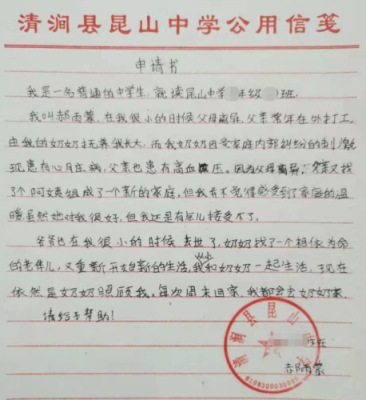 清涧县昆山中学公用信笺
申请书
我是一名普通的中学生,就读昆山中学 年级 班.
我叫郝雨蒙,在我很小的时候父母离庭,父亲常年在外打工,
由我的奶奶抚养我长大,而我奶奶因受家庭内部纠纷的刺激
现患有心月庄病,父亲也患有高血压。因为父母离异,爸又找
了个阿姨组成了一个新的家庭,但我并不觉得感受到了家庭的温
暖虽然她对我很好,但我还是有点儿接受不了。
爷爷也在我很小的时候去世了,奶奶找了一个相依为命
的老伴儿,又重新开始新的生活,我和奶奶一起生活,现在
依然是奶奶照顾我。每次周末回家,我都会去奶奶家.
请给予帮助!
清涧县昆山
雨蒙